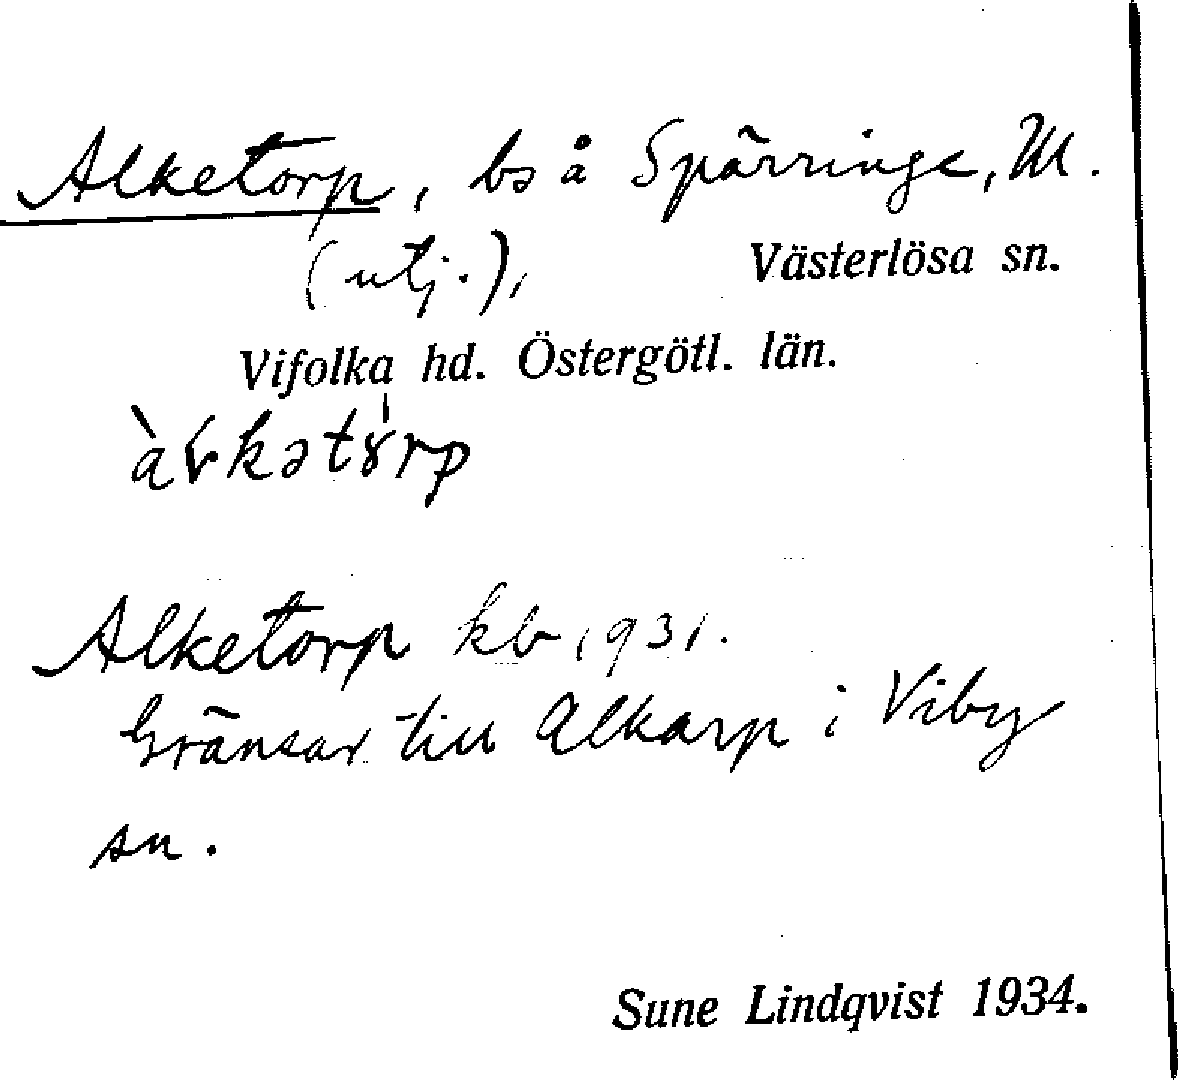 Alketorp, bs å Spärringe, M.
(utj.), Västerlösa sn.
Vifolka hd. Östergötl. län.
Alketorp kb 1931.
Gränsar till Alkarp i Viby
sn.
Sune Lindqvist 1934.